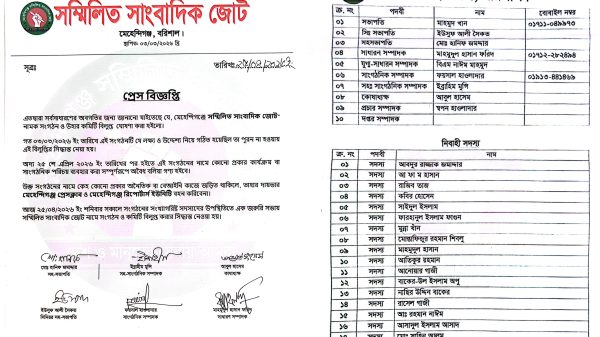 সম্মিলিত সাংবাদিক জোট
মেহেন্দিগঞ্জ, বরিশাল।
স্থাপিতঃ ০৩/০৩/২০২৬ খ্রি
সূত্রঃ
তারিখঃ ২৫/০৪/২০২৬ইং
প্রেস বিজ্ঞপ্তি
এতদ্বারা সর্বসাধারণের অবগতির জন্য জানানো যাইতেছে যে, মেহেন্দিগঞ্জে সম্মিলিত সাংবাদিক জোট-
নামক সংগঠন ও উহার কমিটি বিলুপ্ত ঘোষণা করা হইলো।
গত ০৩/০৩/২০২৬ ইং তারিখে এই সংগঠনটি যে লক্ষ্য ও উদ্দেশ্য নিয়ে গঠিত হয়েছিল তা পূরন না হওয়ায়
এই বিলুপ্তির সিদ্ধান্ত নেয়া হয়।
অদ্য ২৫ শে এপ্রিল ২০২৬ ইং তারিখের পর হইতে এই সংগঠনের নামে কোনো প্রকার কার্যক্রম বা
সাংগঠনিক পরিচয় ব্যবহার করা সম্পূর্ণরূপে অবৈধ বলিয়া গণ্য হইবে।
উক্ত সংগঠনের নামে কেহ কোনো প্রকার অনৈতিক বা বেআইনি কাজে জড়িত থাকিলে, তাহার দায়ভার
মেহেন্দিগঞ্জ প্রেসক্লাব ও মেহেন্দিগঞ্জ রিপোর্টার্স ইউনিটি বহন করিবেনা।
আজ ২৫/০৪/২০২৬ইং শনিবার সকালে সংগঠনের সংখ্যাগরিষ্ট সদস্যদের উপস্থিতিতে এক জরুরি সভায়
সম্মিলিত সাংবাদিক জোট নামে সংগঠন ও কমিটি বিলুপ্ত করার সিদ্ধান্ত নেওয়া হয়।
মোঃ হানিফ জমদ্দার
সহ-সভাপতি
ইব্রাহিম মুন্সি
সহ-সাংগঠনিক সম্পাদক
আবুল হাসেম
কোষাধ্যক্ষ
ইউসুফ আলী সৈকত
সিনিয়র সহ-সভাপতি
ফয়সাল হাওলাদার
সাংগঠনিক সম্পাদক
মাহমুদুল হাসান ফরিদ
সাধারণ সম্পাদক
ক্র. নং পদবী নাম মোবাইল নম্বর
০১ সভাপতি মাহমুদ খান ০১৭১১-০৪৯৯৭৩
০২ সিঃ সভাপতি ইউসুফ আলী সৈকত
০৩ সহসভাপতি মোঃ হানিফ জমদ্দার
০৪ সাধারণ সম্পাদক মাহমুদুল হাসান ফরিদ ০১৭১২-২৮২৪৯৪
০৫ যুগ্ম-সাধারন সম্পাদক বিএম নাঈম মাহমুদ
০৬ সাংগঠনিক সম্পাদক ফয়সাল হাওলাদার ০১৯১৩-৪৪১৪৬৯
০৭ সহঃ সাংগঠনিক সম্পাদক ইব্রাহিম মুন্সি
০৮ কোষাধ্যক্ষ আবুল হাসেম
০৯ প্রচার সম্পাদক স্বপন হাওলাদার
১০ দপ্তর সম্পাদক
নির্বাহী সদস্য
ক্র. নং পদবী নাম
০১ সদস্য আবদুর রাজ্জাক জমদ্দার
০২ সদস্য আ ফা ম হাসান
০৩ সদস্য রাজিব তাজ
০৪ সদস্য কবির হোসেন
০৫ সদস্য সাইদুল ইসলাম
০৬ সদস্য ফারহানুল ইসলাম ফাগুন
০৭ সদস্য মুন্না খাঁন
০৮ সদস্য মোস্তাফিজুর রহমান শিবলু
০৯ সদস্য মাহমুদুল হাসান
১০ সদস্য আতিকুর রহমান
১১ সদস্য আনোয়ার গাজী
১২ সদস্য বাকের-উল ইসলাম অপু
১৩ সদস্য নাহিদ উদ্দিন বাকের
১৪ সদস্য রাসেল গাজী
১৫ সদস্য আঃ রহমান নাঈম
১৬ সদস্য আসাদুল ইসলাম আসাদ